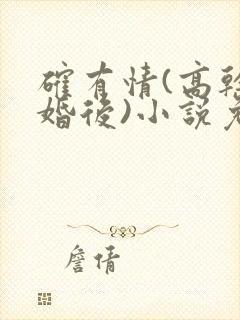 確有情(高幹
婚後)小說
詹倩